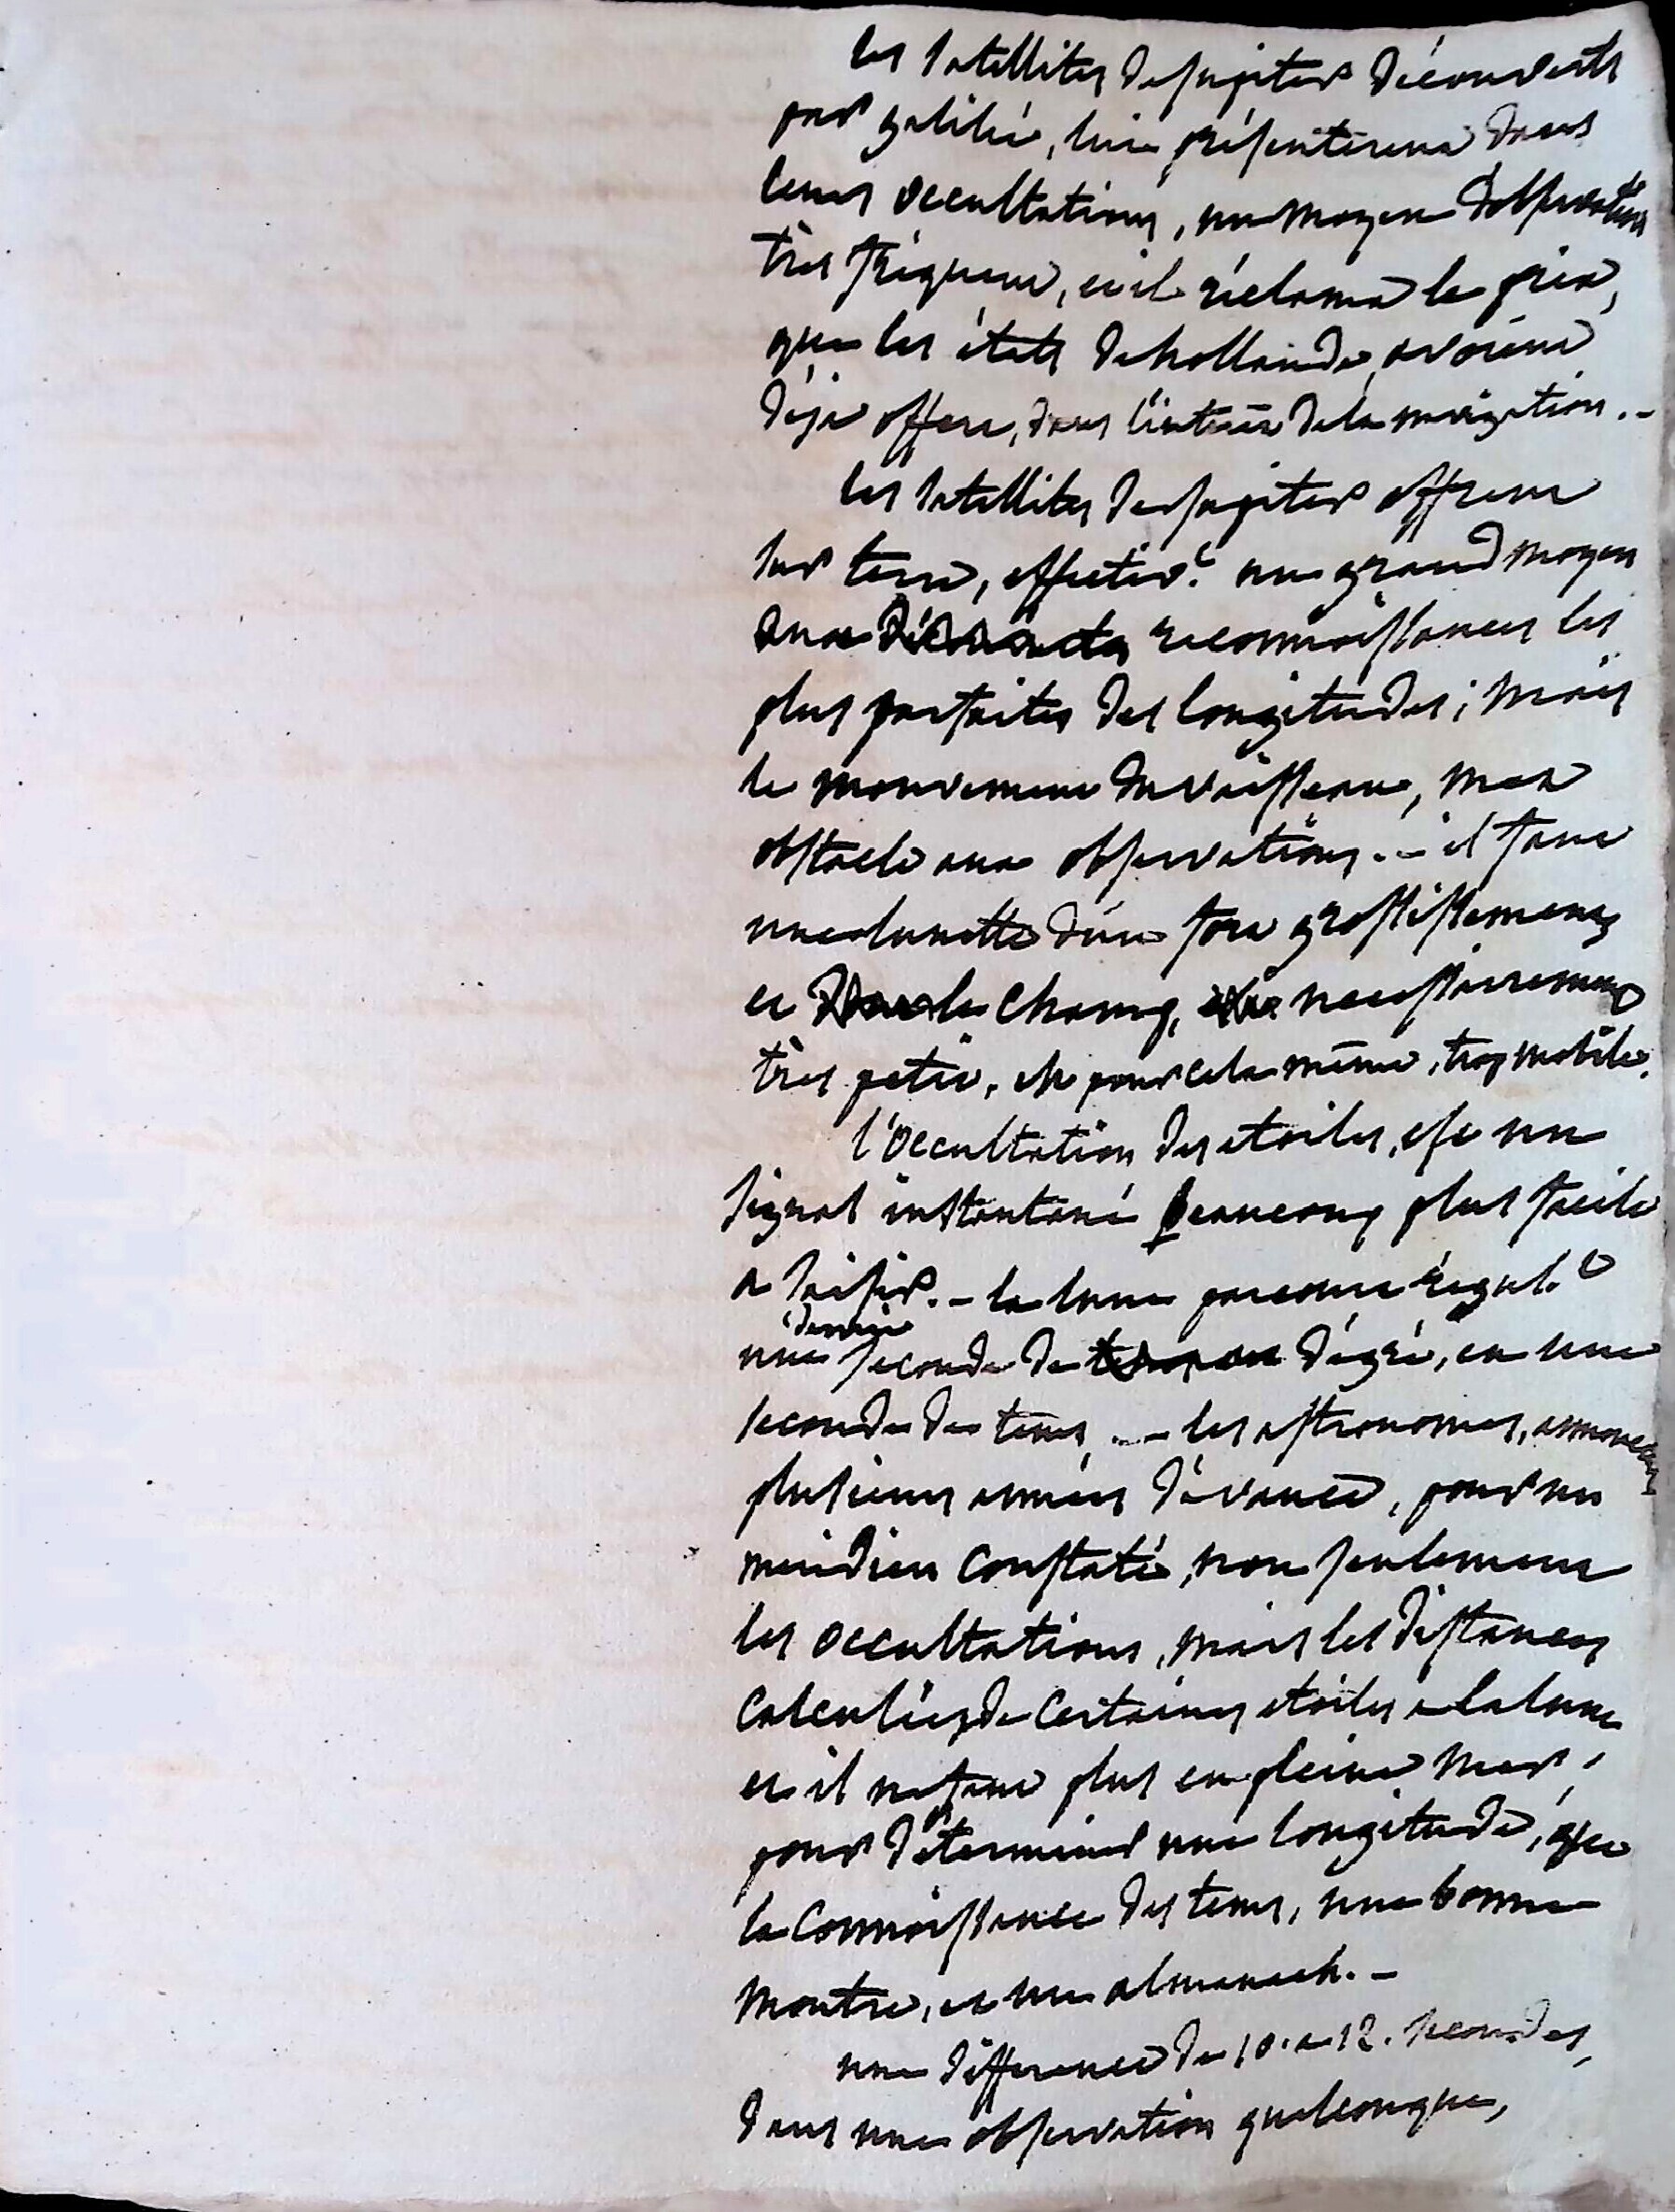 les satellites de jupiter découverts
par galilée, lui présenterent dans
leurs occultations, un moyen d'observation
très fréquent, et il réclama le prix,
que les états de hollande, avoient
déjà offert, dans l'intérêt de la navigation. -
les satellites de jupiter offrent
sur terre, effectivt. un grand moyen
aux reconnoissances les
plus parfaites des longitudes; mais
le mouvement du vaisseau, met
obstacle aux observations. - il faut
une lunette d'un fort grossissement
et le champ, necessairement
très petit, est pour cela même, trop mobile.
l'occultation des etoiles, est un
signal instantané beaucoup plus facile
a saisir. - la lune parcourt régult.
demie
une seconde de dégré, en une
seconde de tems. - les astronomes, annoncent
plusieurs années d'avance, pour un
meridien constaté, non seulement
les occultations, mais les distances
calculées de certaines etoiles a la lune
et il ne faut plus en pleine mer,
pour déterminer une longitude, que
la connoissance des tems, une bonne
montre, et un almanach. -
une différence de 10. a 12. secondes,
dans une observation quelconque,